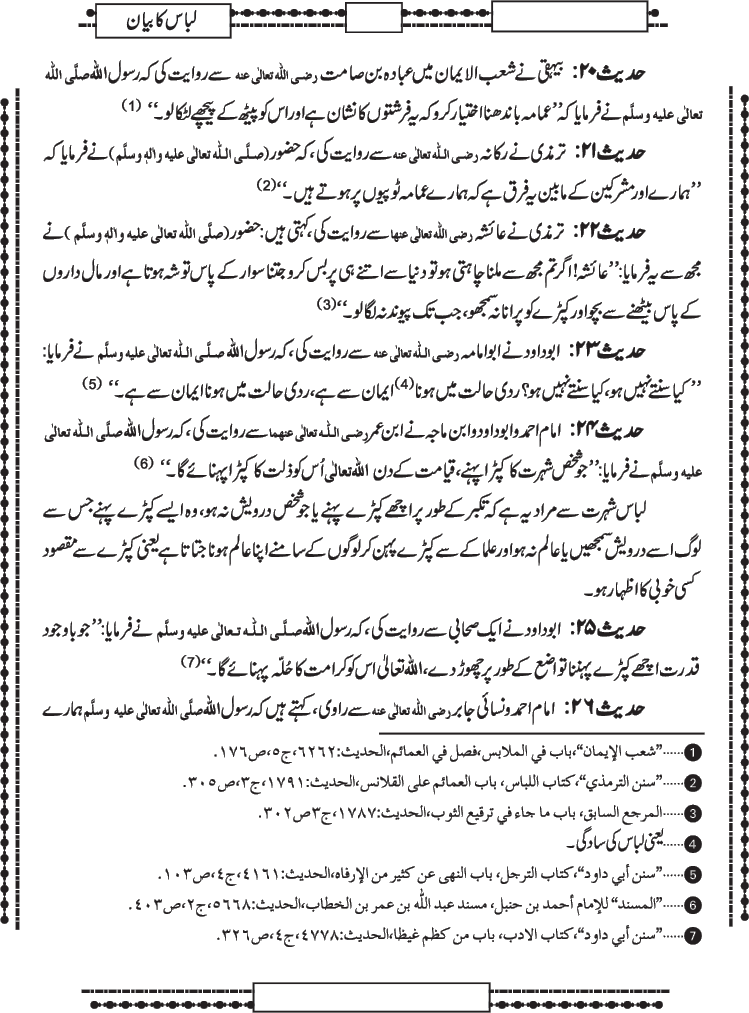 لباس کا بیان
حدیث ۲۰: بیہقی نے شعب الایمان میں عبادہ بن صامت رضی اللہ تعالٰی عنہ سے روایت کی کہ رسول اللہ صلَّی اللہ
تعالٰی علیہ وسلَّم نے فرمایا کہ ’’عمامہ باندھنا اختیار کرو کہ یہ فرشتوں کا نشان ہے اور اس کو پیٹھ کے پیچھے لٹکالو۔‘‘ (1)
حدیث ۲۱: ترمذی نے رکانہ رضی اللہ تعالٰی عنہ سے روایت کی، کہ حضور (صلَّی اللہ تعالٰی علیہ واٰلہٖ وسلَّم) نے فرمایا کہ
’’ہمارے اور مشرکین کے مابین یہ فرق ہے کہ ہمارے عمامہ ٹوپیوں پر ہوتے ہیں۔‘‘(2)
حدیث ۲۲: ترمذی نے عائشہ رضی اللہ تعالٰی عنہا سے روایت کی، کہتی ہیں: حضور (صلَّی اللہ تعالٰی علیہ واٰلہٖ وسلَّم ) نے
مجھ سے یہ فرمایا: ’’عائشہ! اگر تم مجھ سے ملنا چاہتی ہو تو دنیا سے اتنے ہی پر بس کرو جتنا سوار کے پاس توشہ ہوتا ہے اور مال داروں
کے پاس بیٹھنے سے بچو اور کپڑے کو پرانا نہ سمجھو، جب تک پیوند نہ لگا لو۔‘‘(3)
حدیث ۲۳: ابو داود نے ابوامامہ رضی اللہ تعالٰی عنہ سے روایت کی، کہ رسول اللہ صلَّی اللہ تعالٰی علیہ وسلَّم نے فرمایا:
’’کیا سنتے نہیں ہو، کیا سنتے نہیں ہو؟ ردی حالت میں ہونا(4) ایمان سے ہے، ردی حالت میں ہونا ایمان سے ہے۔‘‘ (5)
حدیث ۲۴: امام احمد و ابو داود و ابن ماجہ نے ابن عمر رضی اللہ تعالٰی عنہما سے روایت کی، کہ رسول اللہ صلَّی اللہ تعالٰی
علیہ وسلَّم نے فرمایا: ’’جو شخص شہرت کا کپڑا پہنے، قیامت کے دن اللہ تعالیٰ اُس کو ذلت کا کپڑا پہنائے گا۔‘‘ (6)
لباس شہرت سے مراد یہ ہے کہ تکبر کے طور پر اچھے کپڑے پہنے یا جو شخص درویش نہ ہو، وہ ایسے کپڑے پہنے جس سے
لوگ اسے درویش سمجھیں یا عالم نہ ہو اور علما کے سے کپڑے پہن کر لوگوں کے سامنے اپنا عالم ہونا جتاتا ہے یعنی کپڑے سے مقصود
کسی خوبی کا اظہار ہو۔
حدیث ۲۵: ابو داود نے ایک صحابی سے روایت کی، کہ رسول اللہ صلَّی اللہ تعالٰی علیہ وسلَّم نے فرمایا: ’’جو باوجود
قدرت اچھے کپڑے پہننا تواضع کے طور پر چھوڑ دے، اللہ تعالیٰ اس کو کرامت کا حُلّہ پہنائے گا۔‘‘(7)
حدیث ۲۶: امام احمد و نسائی جابر رضی اللہ تعالٰی عنہ سے راوی، کہتے ہیں کہ رسول اللہ صلَّی اللہ تعالٰی علیہ وسلَّم ہمارے
1 ......”شعب الإیمان“، باب في الملابس، فصل في العمائم، الحدیث: ٦٢٦٢، ج٥، ص١٧٦.
2 ......”سنن الترمذي“، کتاب اللباس، باب العمائم علی القلانس، الحدیث: ١٧٩١، ج٣، ص٣٠٥.
3 ......المرجع السابق، باب ما جاء في ترقیع الثوب، الحدیث: ١٧٨٧، ج٣ ص٣٠٢.
4 ......یعنی لباس کی سادگی۔
5 ......”سنن أبي داود“، کتاب الترجل، باب النھی عن کثیر من الإرفاہ، الحدیث: ٤١٦١، ج٤، ص١٠٣.
6 ......”المسند“ للإمام أحمد بن حنبل، مسند عبد اللّٰہ بن عمر بن الخطاب، الحدیث: ٥٦٦٨، ج٢، ص٤٠٣.
7 ......”سنن أبي داود“، کتاب الادب، باب من کظم غیظا، الحدیث: ٤٧٧٨، ج٤، ص٣٢٦.